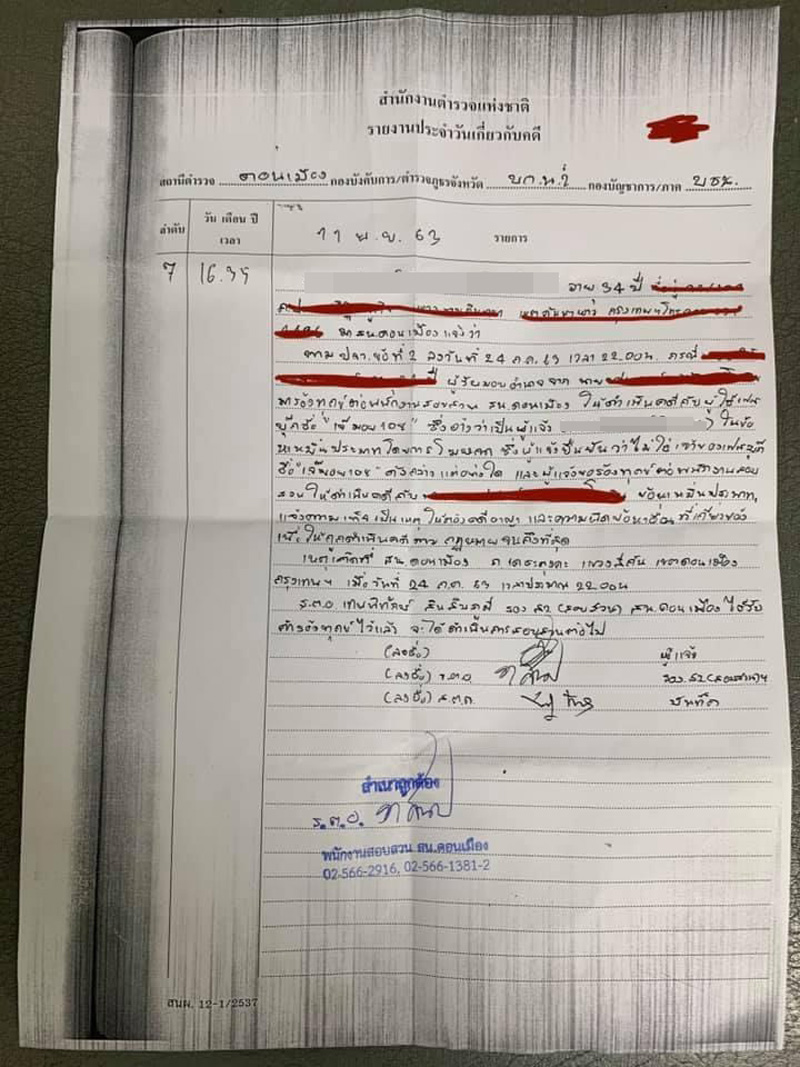 สำนักงานตำรวจแห่งชาติ
รายงานประจำวันเกี่ยวกับคดี
สถานีตำรวจ ดอนเมือง กองบังคับการ/ตำรวจภูธรจังหวัด บก.น.2 กองบัญชาการ/ภาค บชน.
ลำดับ
วัน เดือน ปี
เวลา
11 พ.ย. 63 รายการ
7 16.35
อายุ 34 ปี
มา สน.ดอนเมือง แจ้งว่า
ตาม ปจว. ข้อที่ 2 ลงวันที่ 24 ต.ค. 63 เวลา 22.00น. กรณี
ผู้รับมอบอำนาจจาก นาย
มาร้องทุกข์ต่อพนักงานสอบสวน สน.ดอนเมือง ให้ดำเนินคดีกับผู้ใช้เฟซ
บุ๊กชื่อ "เจ๊มอย108" ซึ่งอ้างว่าเป็นผู้แจ้ง ) ในข้อ
หาหมิ่นประมาทโดยการโฆษณา ซึ่งผู้แจ้งยืนยันว่าไม่ใช่เจ้าของเฟซบุ๊ก
ชื่อ "เจ๊มอย108" ดังกล่าวแต่อย่างใด และผู้แจ้งขอร้องทุกข์ต่อพนักงานสอบ
สวน ให้ดำเนินคดีกับ ข้อหาหมิ่นประมาท,
แจ้งความเท็จ และความผิดข้อหาอื่น ที่เกี่ยวข้อง
ดำเนินคดีตามกฎหมายจนถึงที่สุด
เหตุเกิดที่ สน.ดอนเมือง ถ.เตชะตุงคะ แขวงสีกัน เขตดอนเมือง
กรุงเทพฯ เมื่อวันที่ 24 ต.ค. 63 เวลาประมาณ 22.00น
ร.ต.อ. รอง สว.(สอบสวน) สน.ดอนเมือง ได้รับ
คำร้องทุกข์ไว้แล้ว จะได้ดำเนินการสอบสวนต่อไป
(ลงชื่อ) ผู้แจ้ง
(ลงชื่อ) ร.ต.อ. รอง สว.(สอบสวน)ฯ
(ลงชื่อ) ส.ต.ต. บันทึก
สำเนาถูกต้อง
ร.ต.อ.
พนักงานสอบสวน สน.ดอนเมือง
02-566-2916, 02-566-1381-2
สนผ. 12-1/2537